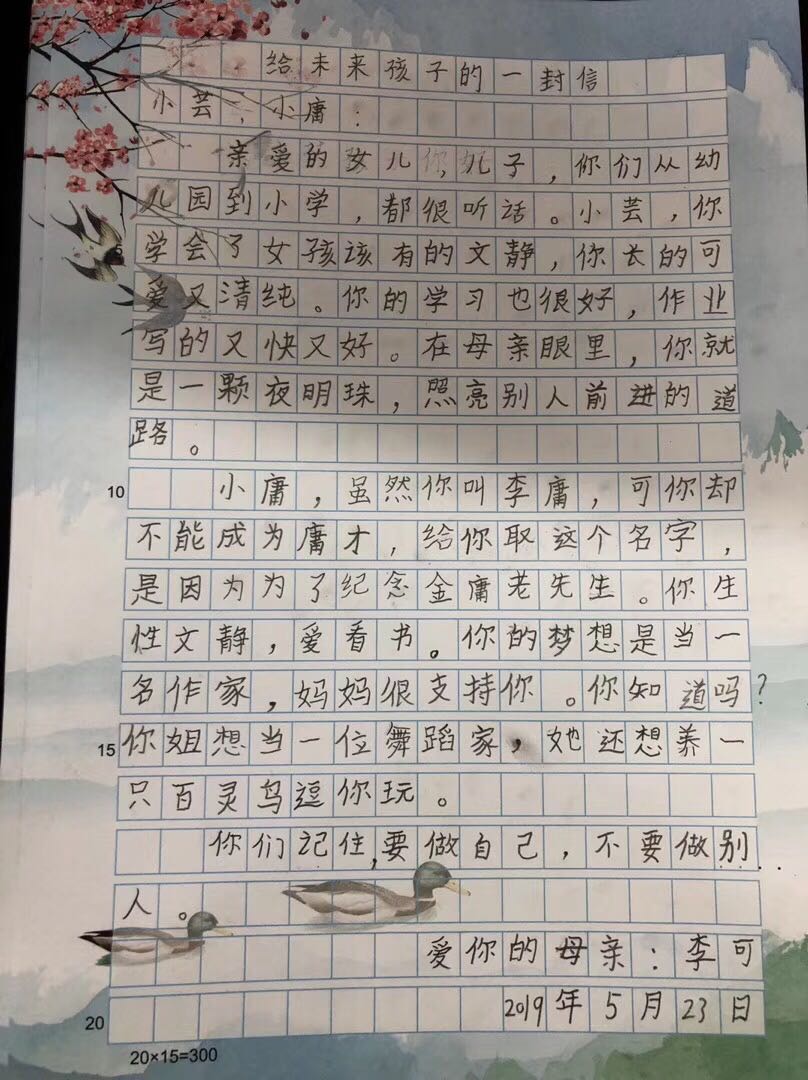 给未来孩子的一封信
小芸，小庸：
亲爱的女儿，儿子，你们从幼
儿园到小学，都很听话。小芸，你
学会了女孩该有的文静，你长的可
爱又清纯。你的学习也很好，作业
写的又快又好。在母亲眼里，你就
是一颗夜明珠，照亮别人前进的道
路。
10 小庸，虽然你叫李庸，可你却
不能成为庸才，给你取这个名字，
是因为为了纪念金庸老先生。你生
性文静，爱看书。你的梦想是当一
名作家，妈妈很支持你。你知道吗？
15 你姐想当一位舞蹈家，她还想养一
只百灵鸟逗你玩。
你们记住，要做自己，不要做别
人。
爱你的母亲：李可
20 2019年5月23日
20×15=300